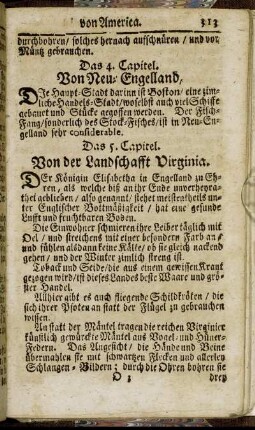 von America. 313
durchbohren / solches hernach aufschnüren / und vor
Müntz gebrauchen.
Das 4. Capitel.
Von Neu-Engelland,
DIe Haupt-Stadt darinn ist Boston / eine zim-
liche Handels-Stadt / woselbst auch viel Schiffe
gebauet und Stücke gegossen werden. Der Fisch-
Fang / sonderlich des Stock-Fisches / ist in Neu-En-
gelland sehr considerable.
Das 5. Capitel.
Von der Landschafft Virginia.
DEr Königin Elisabetha in Engelland zu Eh-
ren / als welche biß an ihr Ende unverheyra-
thet geblieben / also genant / stehet meistentheils un-
ter Englischer Bottmäßigkeit / hat eine gesunde
Lufft und fruchtbaren Boden.
Die Einwohner schmieren ihre Leiber täglich mit
Oel / und streichens mit einer besondern Farb an /
und fühlen alsdann keine Kälte / ob sie gleich nackend
gehen / und der Winter zimlich streng ist.
Toback und Seide / die aus einem gewissen Kraut
gezogen wird / ist dieses Landes beste Waare und grö-
ster Handel.
Allhier gibt es auch fliegende Schildkröten / die
sich ihrer Pfoten an statt der Flügel zu gebrauchen
wissen.
An statt der Mäntel tragen die reichen Virginier
künstlich gewürckte Mäntel aus Vogel- und Hüner-
Federn. Das Angesicht / die Hände und Beine
übermahlen sie mit schwartzen Flecken und allerley
Schlangen-Bildern; durch die Ohren bohren sie
drey